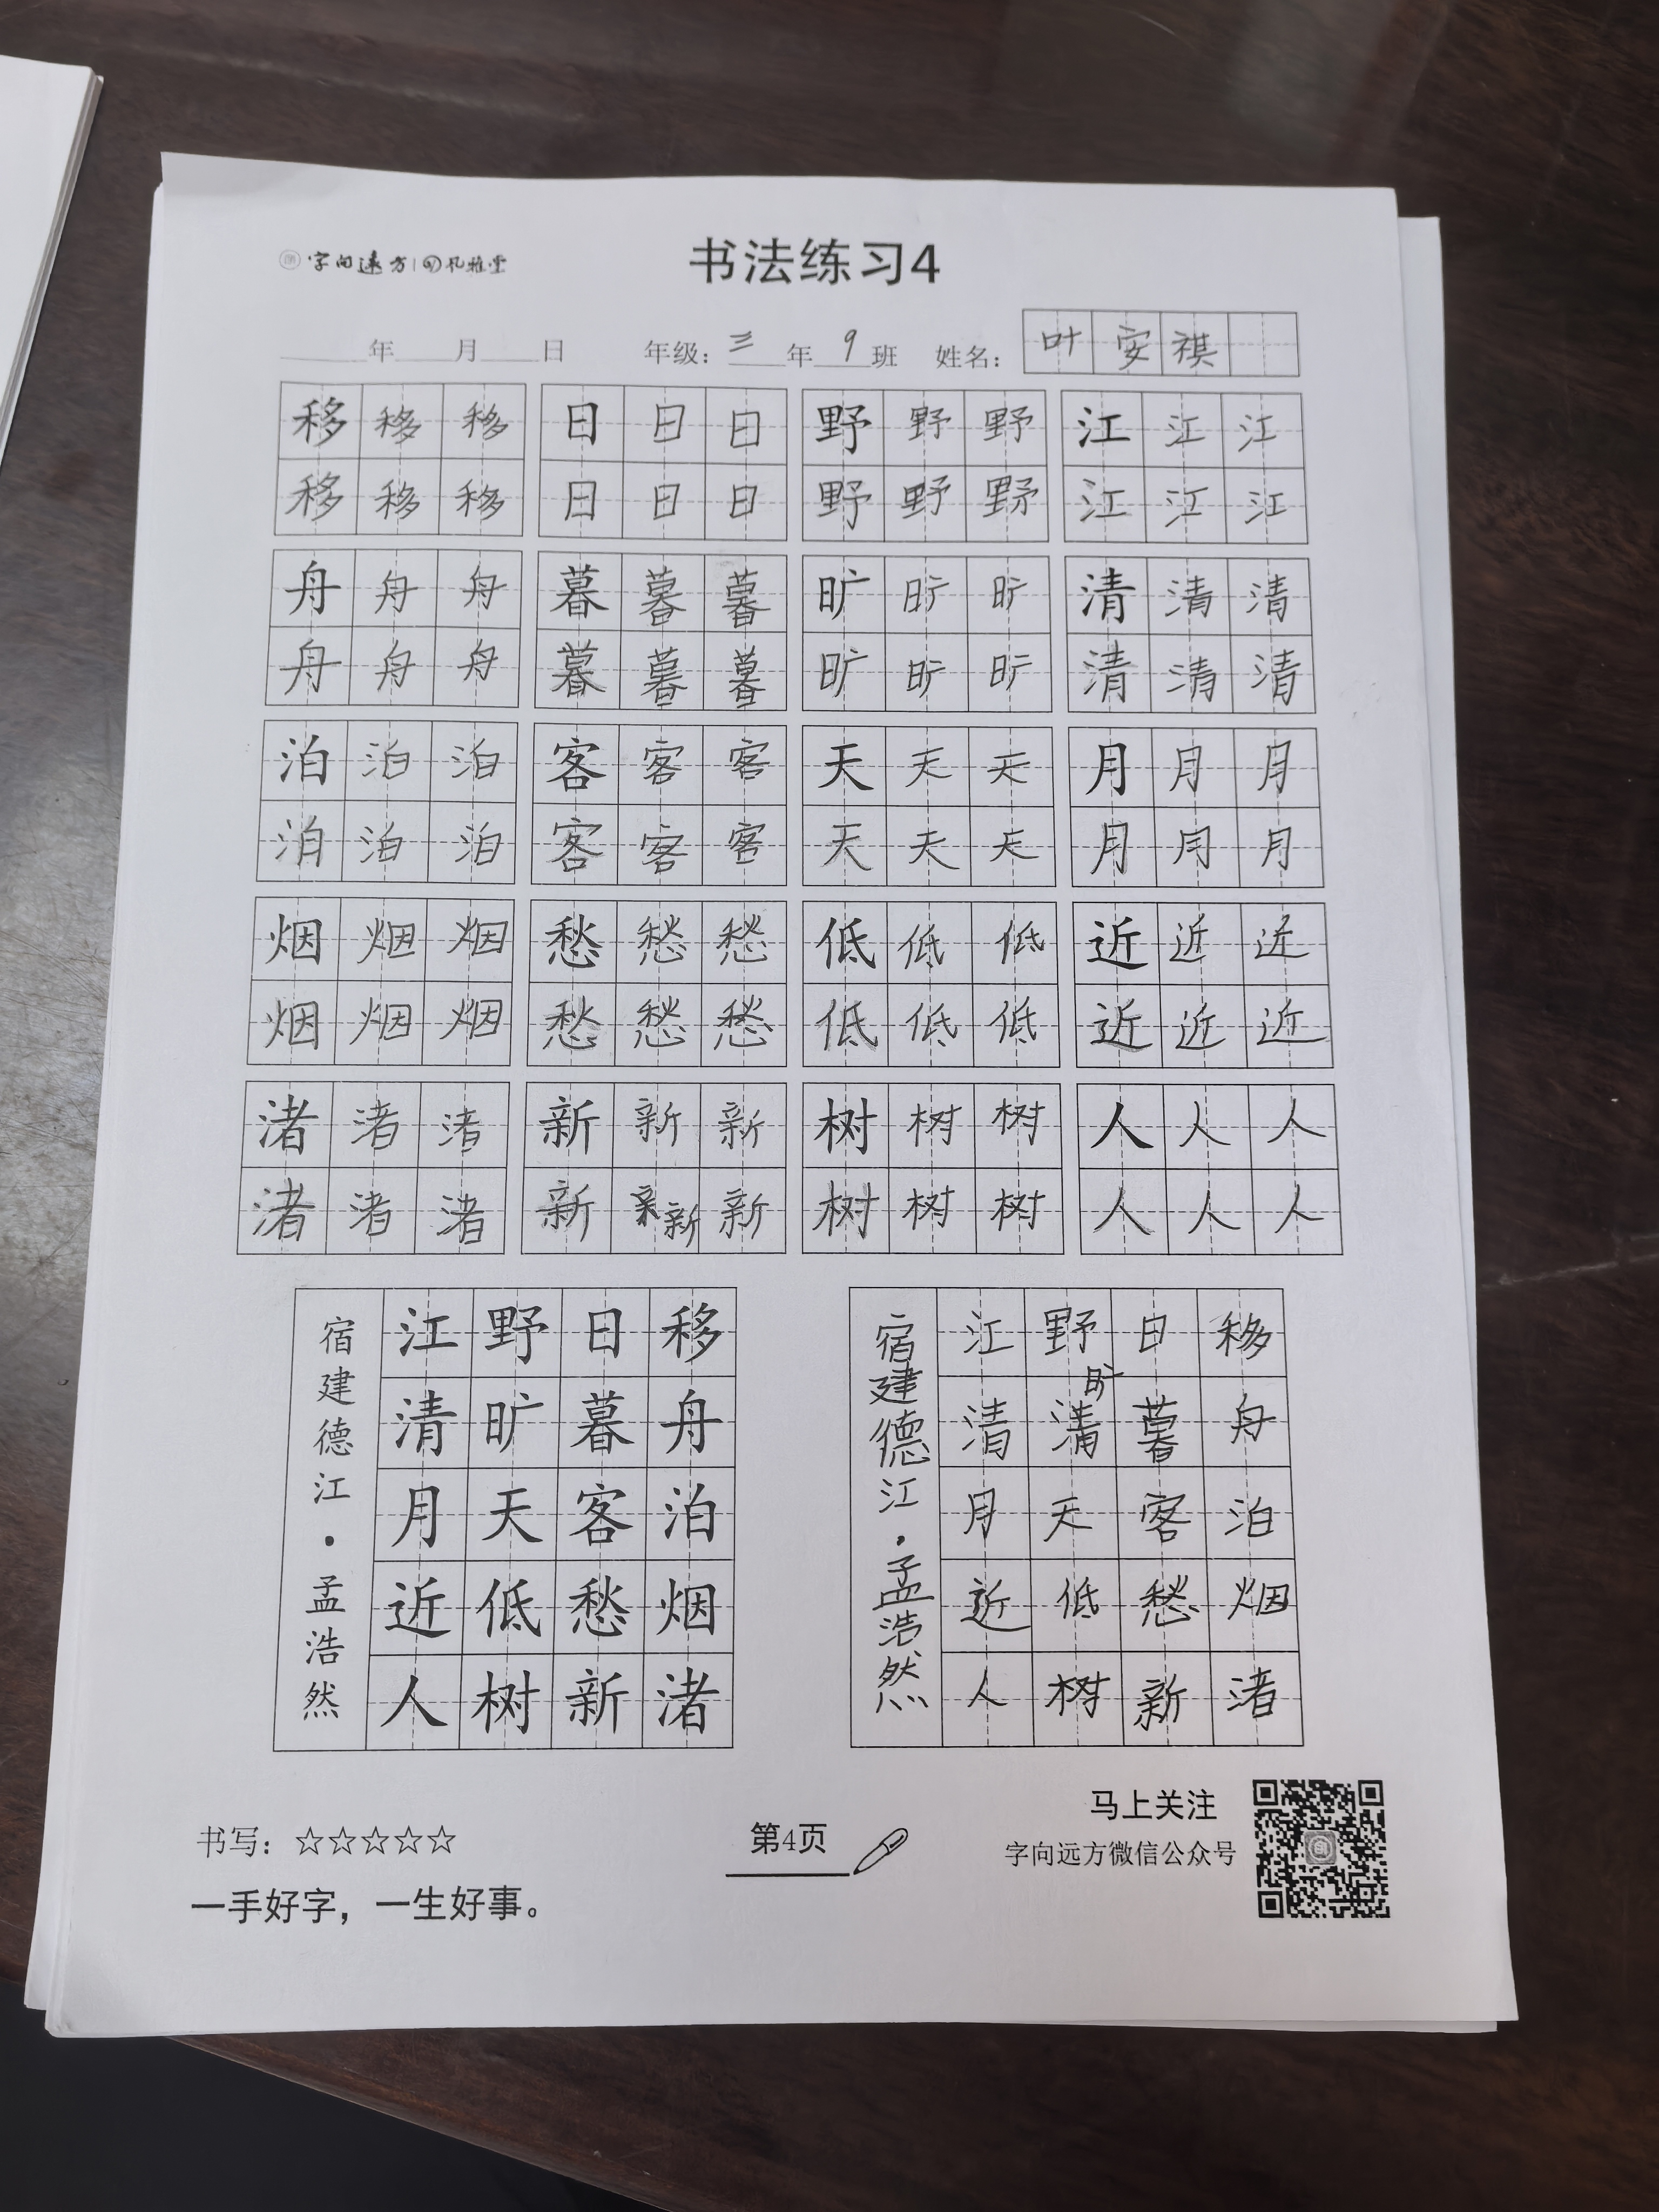 字向远方 孔雅堂
书法练习4
年 月 日 年级：三年9班 姓名：叶安祺
移移移 日日日 野野野 江江江
移移移 日日日 野野野 江江江
舟舟舟 暮暮暮 旷旷旷 清清清
舟舟舟 暮暮暮 旷旷旷 清清清
泊泊泊 客客客 天天天 月月月
泊泊泊 客客客 天天天 月月月
烟烟烟 愁愁愁 低低低 近近近
烟烟烟 愁愁愁 低低低 近近近
渚渚渚 新新新 树树树 人人人
渚渚渚 新亲新新 树树树 人人人
移舟泊烟渚
日暮客愁新
野旷天低树
江清月近人
宿建德江·孟浩然
移舟泊烟渚
日暮客愁新
野旷清天低树
江清月近人
宿建德江·孟浩然
书写：☆☆☆☆☆
一手好字，一生好事。
第4页
马上关注
字向远方微信公众号